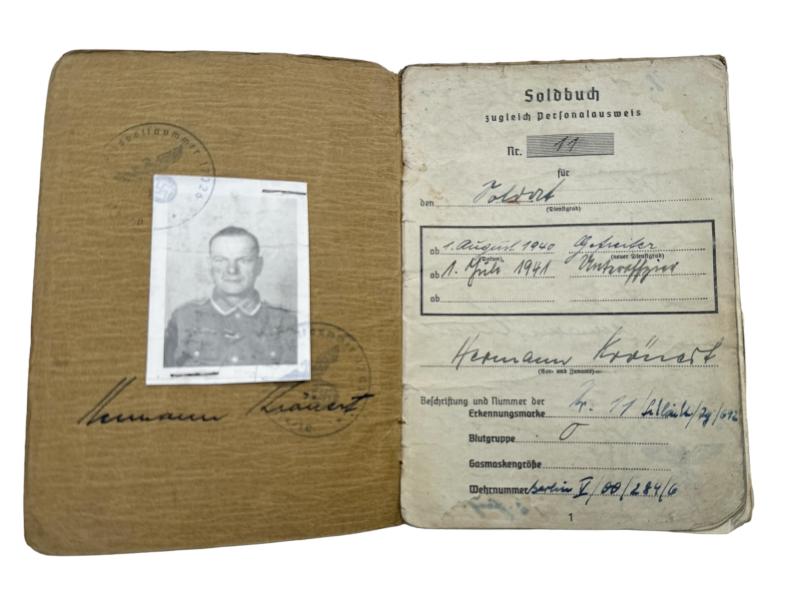 Hermann Krönert
Soldbuch
zugleich Personalausweis
Nr. 11
für
den Soldat
(Dienstgrad)
ab 1. August 1940 Gefreiter
(Datum) (neuer Dienstgrad)
ab 1. Juli 1941 Unteroffizier
ab
Hermann Krönert
(Vor- und Zuname)
Beschriftung und Nummer der
Erkennungsmarke Nr. 11
Blutgruppe O
Gasmaskengröße
Wehrnummer Berlin V/00/284/6
1